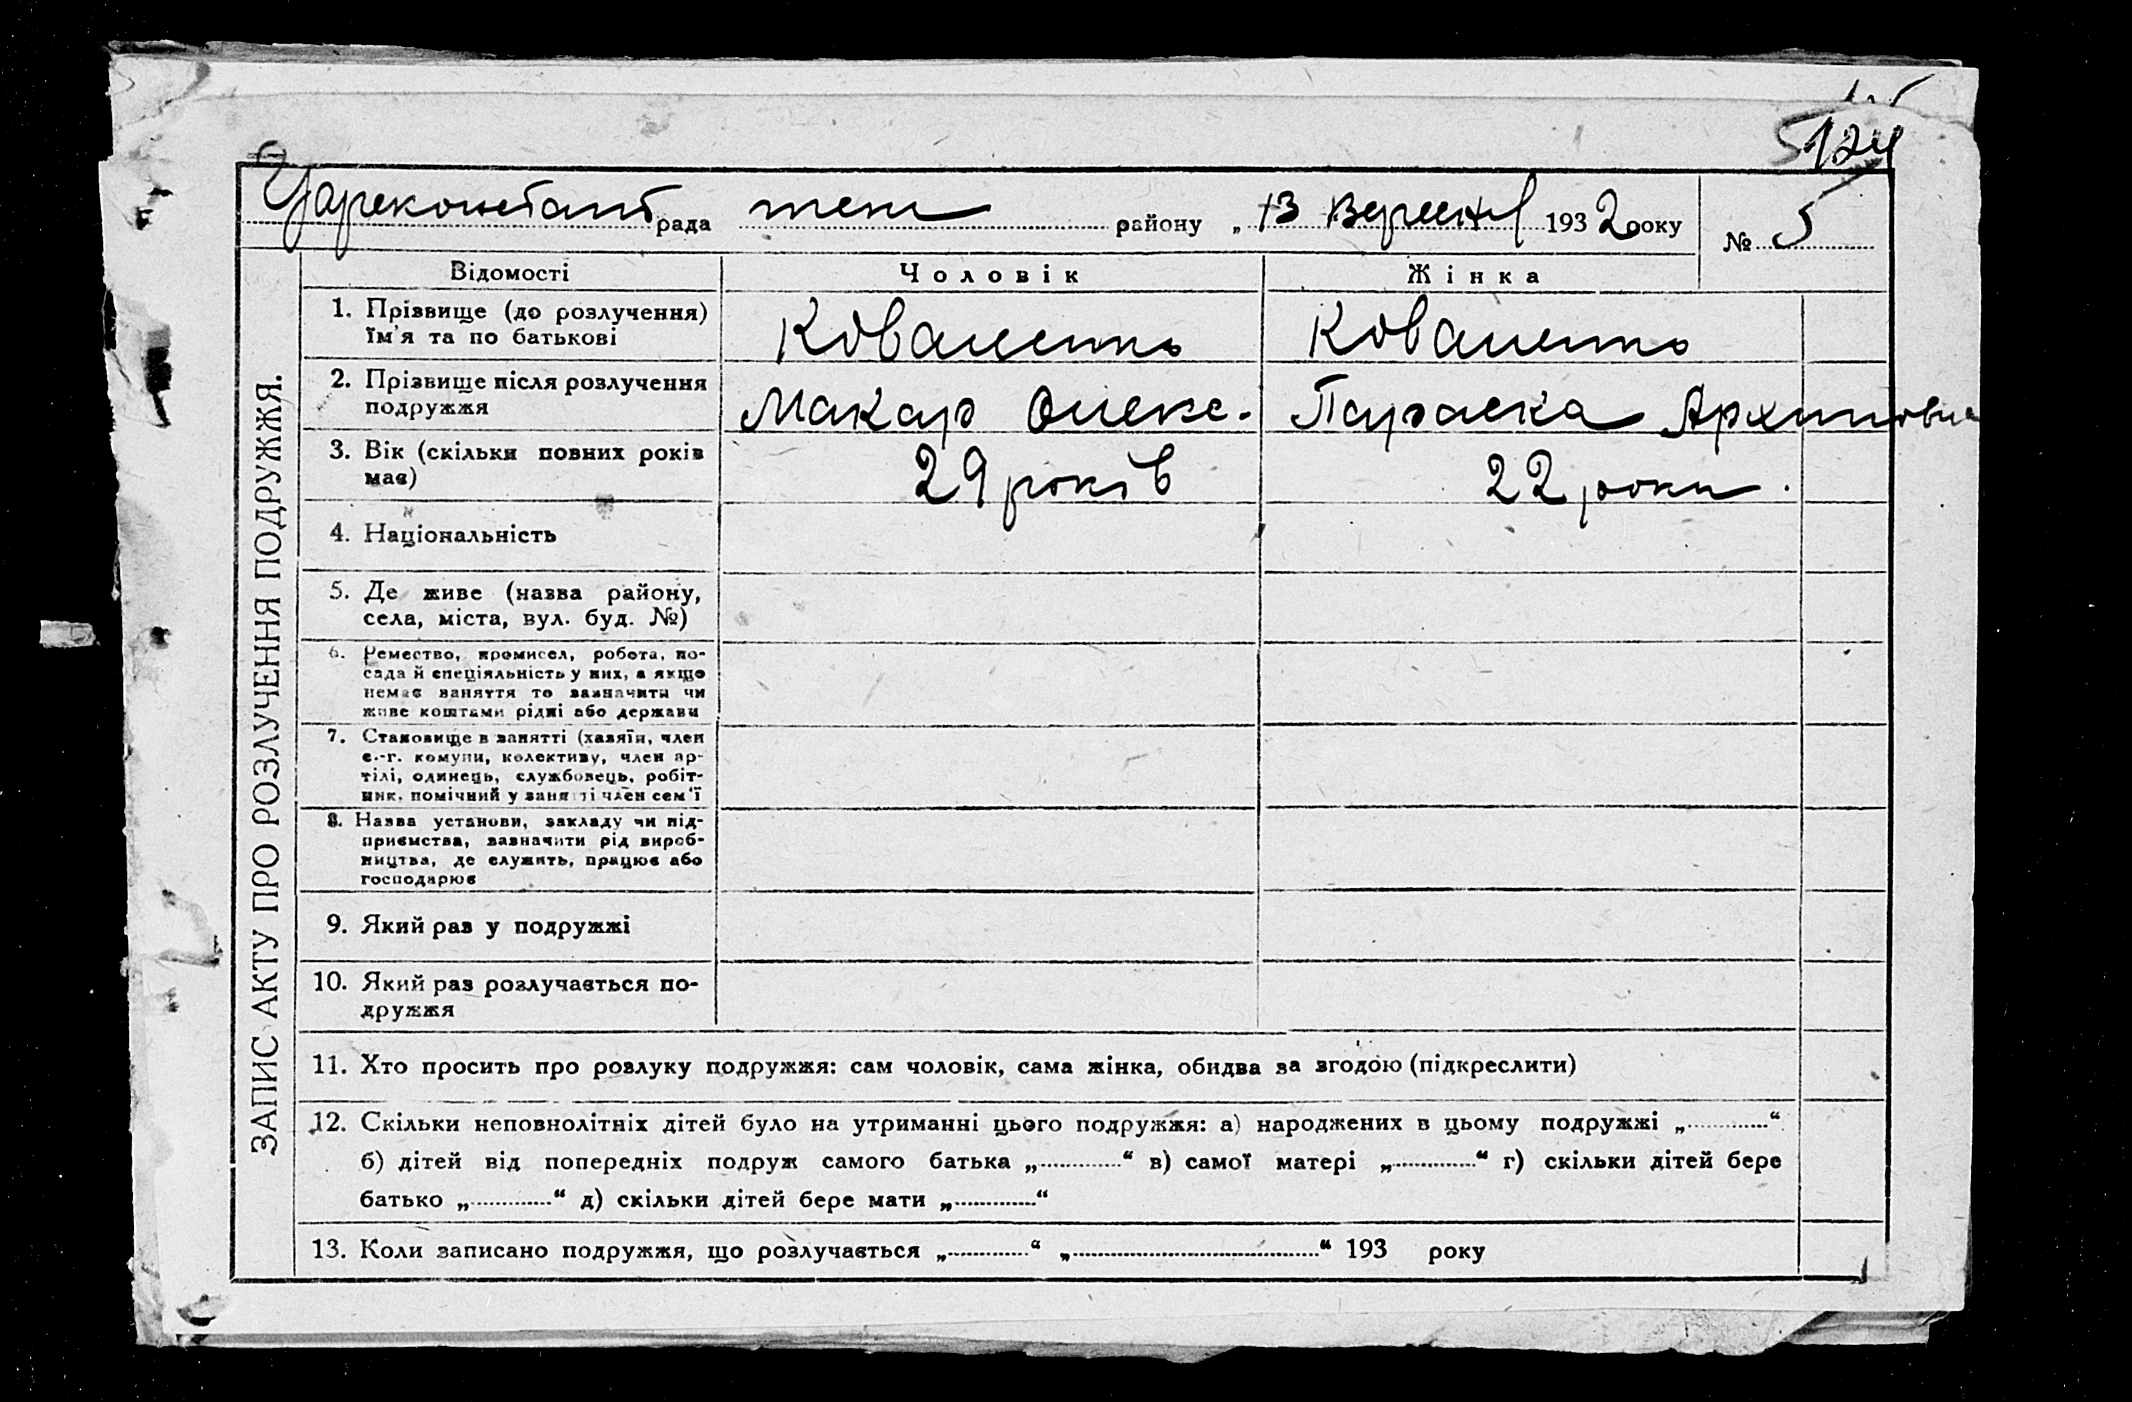 124
Цареконстант рада тем району „ 13 вересня 1932 року № 5
ЗАПИС АКТУ ПРО РОЗЛУЧЕННЯ ПОДРУЖЖЯ.
Відомості Чоловік Жінка
1. Прізвище (до розлучення) їм'я та по батькові
Коваленко Коваленко
2. Прізвище після розлучення подружжя
Макар Олекс. Параска Архиповна
3. Вік (скільки повних років має)
29 років 22 роки.
4. Національність
5. Де живе (назва району,
села, міста, вул. буд. №)
6. Ремество, промисел, робота, по-
сада й спеціяльність у них, а якщо
немає заняття то зазначити чи
живе коштами рідні або держави
7. Становище в занятті (хазяїн, член
с.-г. комуни, колективу, член ар-
тілі, одинець, службовець, робіт-
ник, помічний у занятті член сем'ї
8. Назва установи, закладу чи під-
приємства, зазначити рід вироб-
ництва, де служить, працює або
господарює
9. Який раз у подружжі
10. Який раз розлучається по-
дружжя
11. Хто просить про розлуку подружжя: сам чоловік, сама жінка, обидва за згодою (підкреслити)
12. Скільки неповнолітніх дітей було на утриманні цього подружжя: а) народжених в цьому подружжі „............“
б) дітей від попередніх подруж самого батька „............“ в) самої матері „............“ г) скільки дітей бере
батько „............“ д) скільки дітей бере мати „............“
13. Коли записано подружжя, що розлучається „............“ „....................................“ 193 року